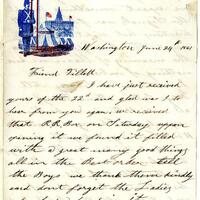 Washington June 24th 1861
Friend Tillott
I have just received
yours of the 22d and glad was I to
hear from you again, we received
that R.R. Box on Saturday upon
opening it we found it filled
with a great many good things
all in the Best order tell
the Boys we thank them kindly
and don't forget the Ladies